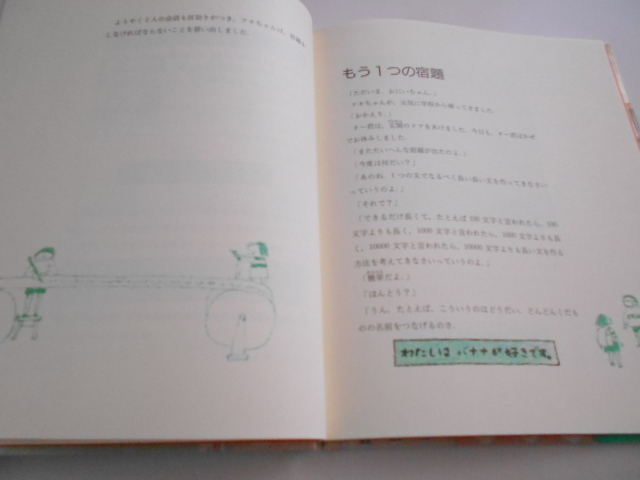 ようやく2人の会話も区切りがつき、フキちゃんは、宿題を
しなければならないことを思い出しました。
もう1つの宿題
「ただいま、おにいちゃん。」
フキちゃんが、元気に学校から帰ってきました。
「おかえり。」
ター君は、玄関のドアをあけました。今日も、ター君はかぜ
でお休みしました。
「またたいへんな宿題が出たのよ。」
「今度は何だい？」
「あのね、1つの文でなるべく長い長い文を作ってきなさい
っていうのよ。」
「それで？」
「できるだけ長くて、たとえば100文字と言われたら、100
文字よりも長く、1000文字と言われたら、1000文字よりも長
く、10000文字と言われたら、10000文字よりも長い文を作る
方法を考えてきなさいっていうのよ。」
「簡単だよ。」
「ほんとう？」
「うん。たとえば、こういうのはどうだい。どんどんくだも
のの名前をつなげるのさ。
わたしは バナナが好きです。